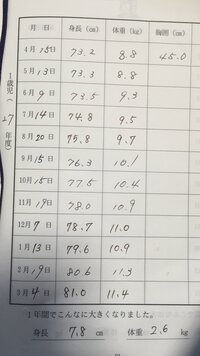 月 日 身長(cm) 体重(kg) 胸囲(cm)
4月 15日 73.2 8.8 45.0
5月 13日 73.3 8.8
6月 9日 73.5 9.3
7月 14日 74.8 9.5
8月 20日 75.8 9.7
9月 15日 76.3 10.1
10月 15日 77.5 10.4
11月 19日 78.0 10.9
12月 7日 78.7 11.0
1月 13日 79.6 10.9
2月 19日 80.6 11.3
3月 4日 81.0 11.4
1歳児(27年度)
1年間でこんなに大きくなりました。
身長 7.8 cm 体重 2.6 kg